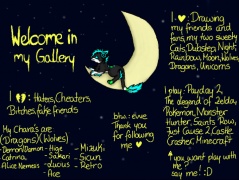 Welcome in
my Gallery
I ♥: Drawing
my friends and
fans, my two sweety
Cats, Dubstep, Night,
Rainbow, Moon, Wolves,
Dragons, Unicorns
I ♥: Haters, Cheaters,
Bitches, fake friends
My Chara's are
(Dragons)(Wolves)
Demon/Damon - Hige - Mizuki
Catrina - Saikan - Sicun
Alice Nemesis - Lucius - Retro
- Ace
btw: evve
Thank you
for following
me ♥
I play: Payday 2
The legend of Zelda,
Pokemon, Monster
Hunter, Saints Row,
Just Cause 2, Castle
Crasher, Minecraft
↑ you want play with
me ?
say me! :D